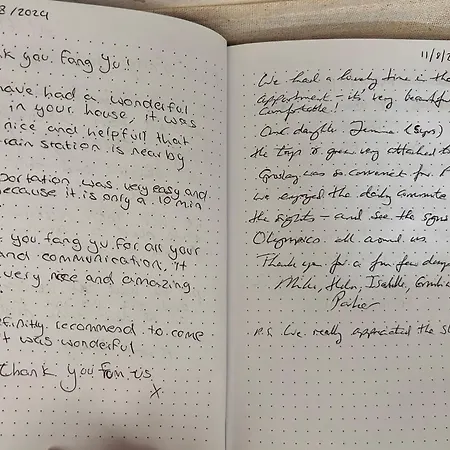 8/2024
k you Fang Yu!
have had a wonderful
in your house, it was
nice and helpfull that
rain station is nearby
portation was very easy and
because it is only a 10 min
you fang yu for all your
and communication, it
very nice and amazing.
efinitly recommend to come
t was wonderful
thank you from us
x
11/8/2
We had a lovely time in the
appartment - it's very beautiful
comfortable!
Our daughter (5yrs)
the toys & grew very attached to
was so convenient for
we enjoyed the daily commute
the sights - and see the signs
Olympics all around us.
Thank you for a fun few days
Mike, Helen, Isabelle,
P.S. We really appreciated the s